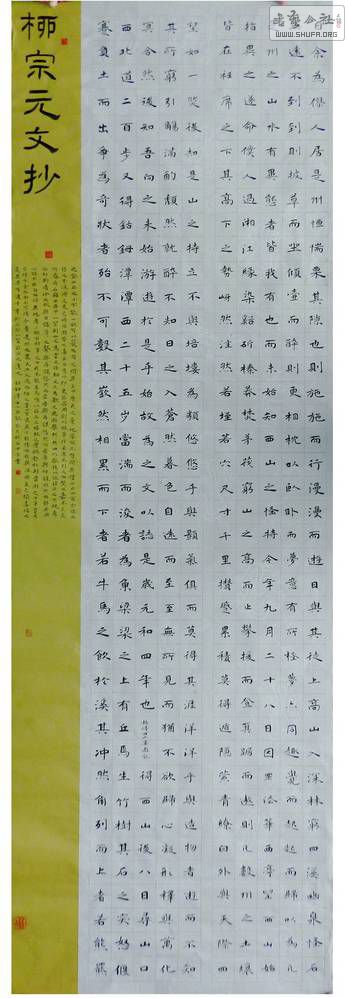 书艺公社
WWW.SHUFA.ORG
柳宗元文抄
自余為僇人居是州恒惴栗其隙也則施施而行漫漫而遊日與其徒上高山入深林窮回溪幽泉怪石
無遠不到到則披草而坐傾壺而醉醉則更相枕以臥臥而夢意有所極夢亦同趣覺而起起而歸以為凡
是州之山水有異態者皆我有也而未始知西山之怪特今年九月二十八日因坐法華西亭望西山始
指異之遂命僕人過湘江緣染溪斫榛莽焚茅茷窮山之高而止攀援而登箕踞而遨則凡數州之土壤
皆在衽席之下其高下之勢岈然洼然若垤若穴尺寸千里攢蹙累積莫得遁隱縈青繚白外與天際四
望如一然後知是山之特立不與培塿為類悠悠乎與顥氣俱而莫得其涯洋洋乎與造物者遊而不知
其所窮引觴滿酌頹然就醉不知日之入蒼然暮色自遠而至至無所見而猶不欲歸心凝形釋與萬化
冥合然後知吾向之未始游遊於是乎始故為之文以誌是歲元和四年也 始得西山宴遊記 得西山後八日尋山口
西北道二百步又得鈷鉧潭潭西二十五步當湍而浚者為魚梁梁之上有丘焉生竹樹其石之突怒偃
蹇負土而出爭為奇狀者殆不可數其嶔然相累而下者若牛馬之飲於溪其沖然角列而上者若熊羆